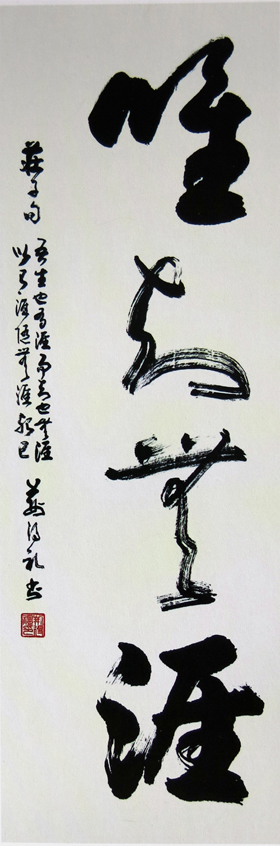 唯知無涯
莊子句
吾生也有涯而知也無涯
以有涯隨無涯殆已
書